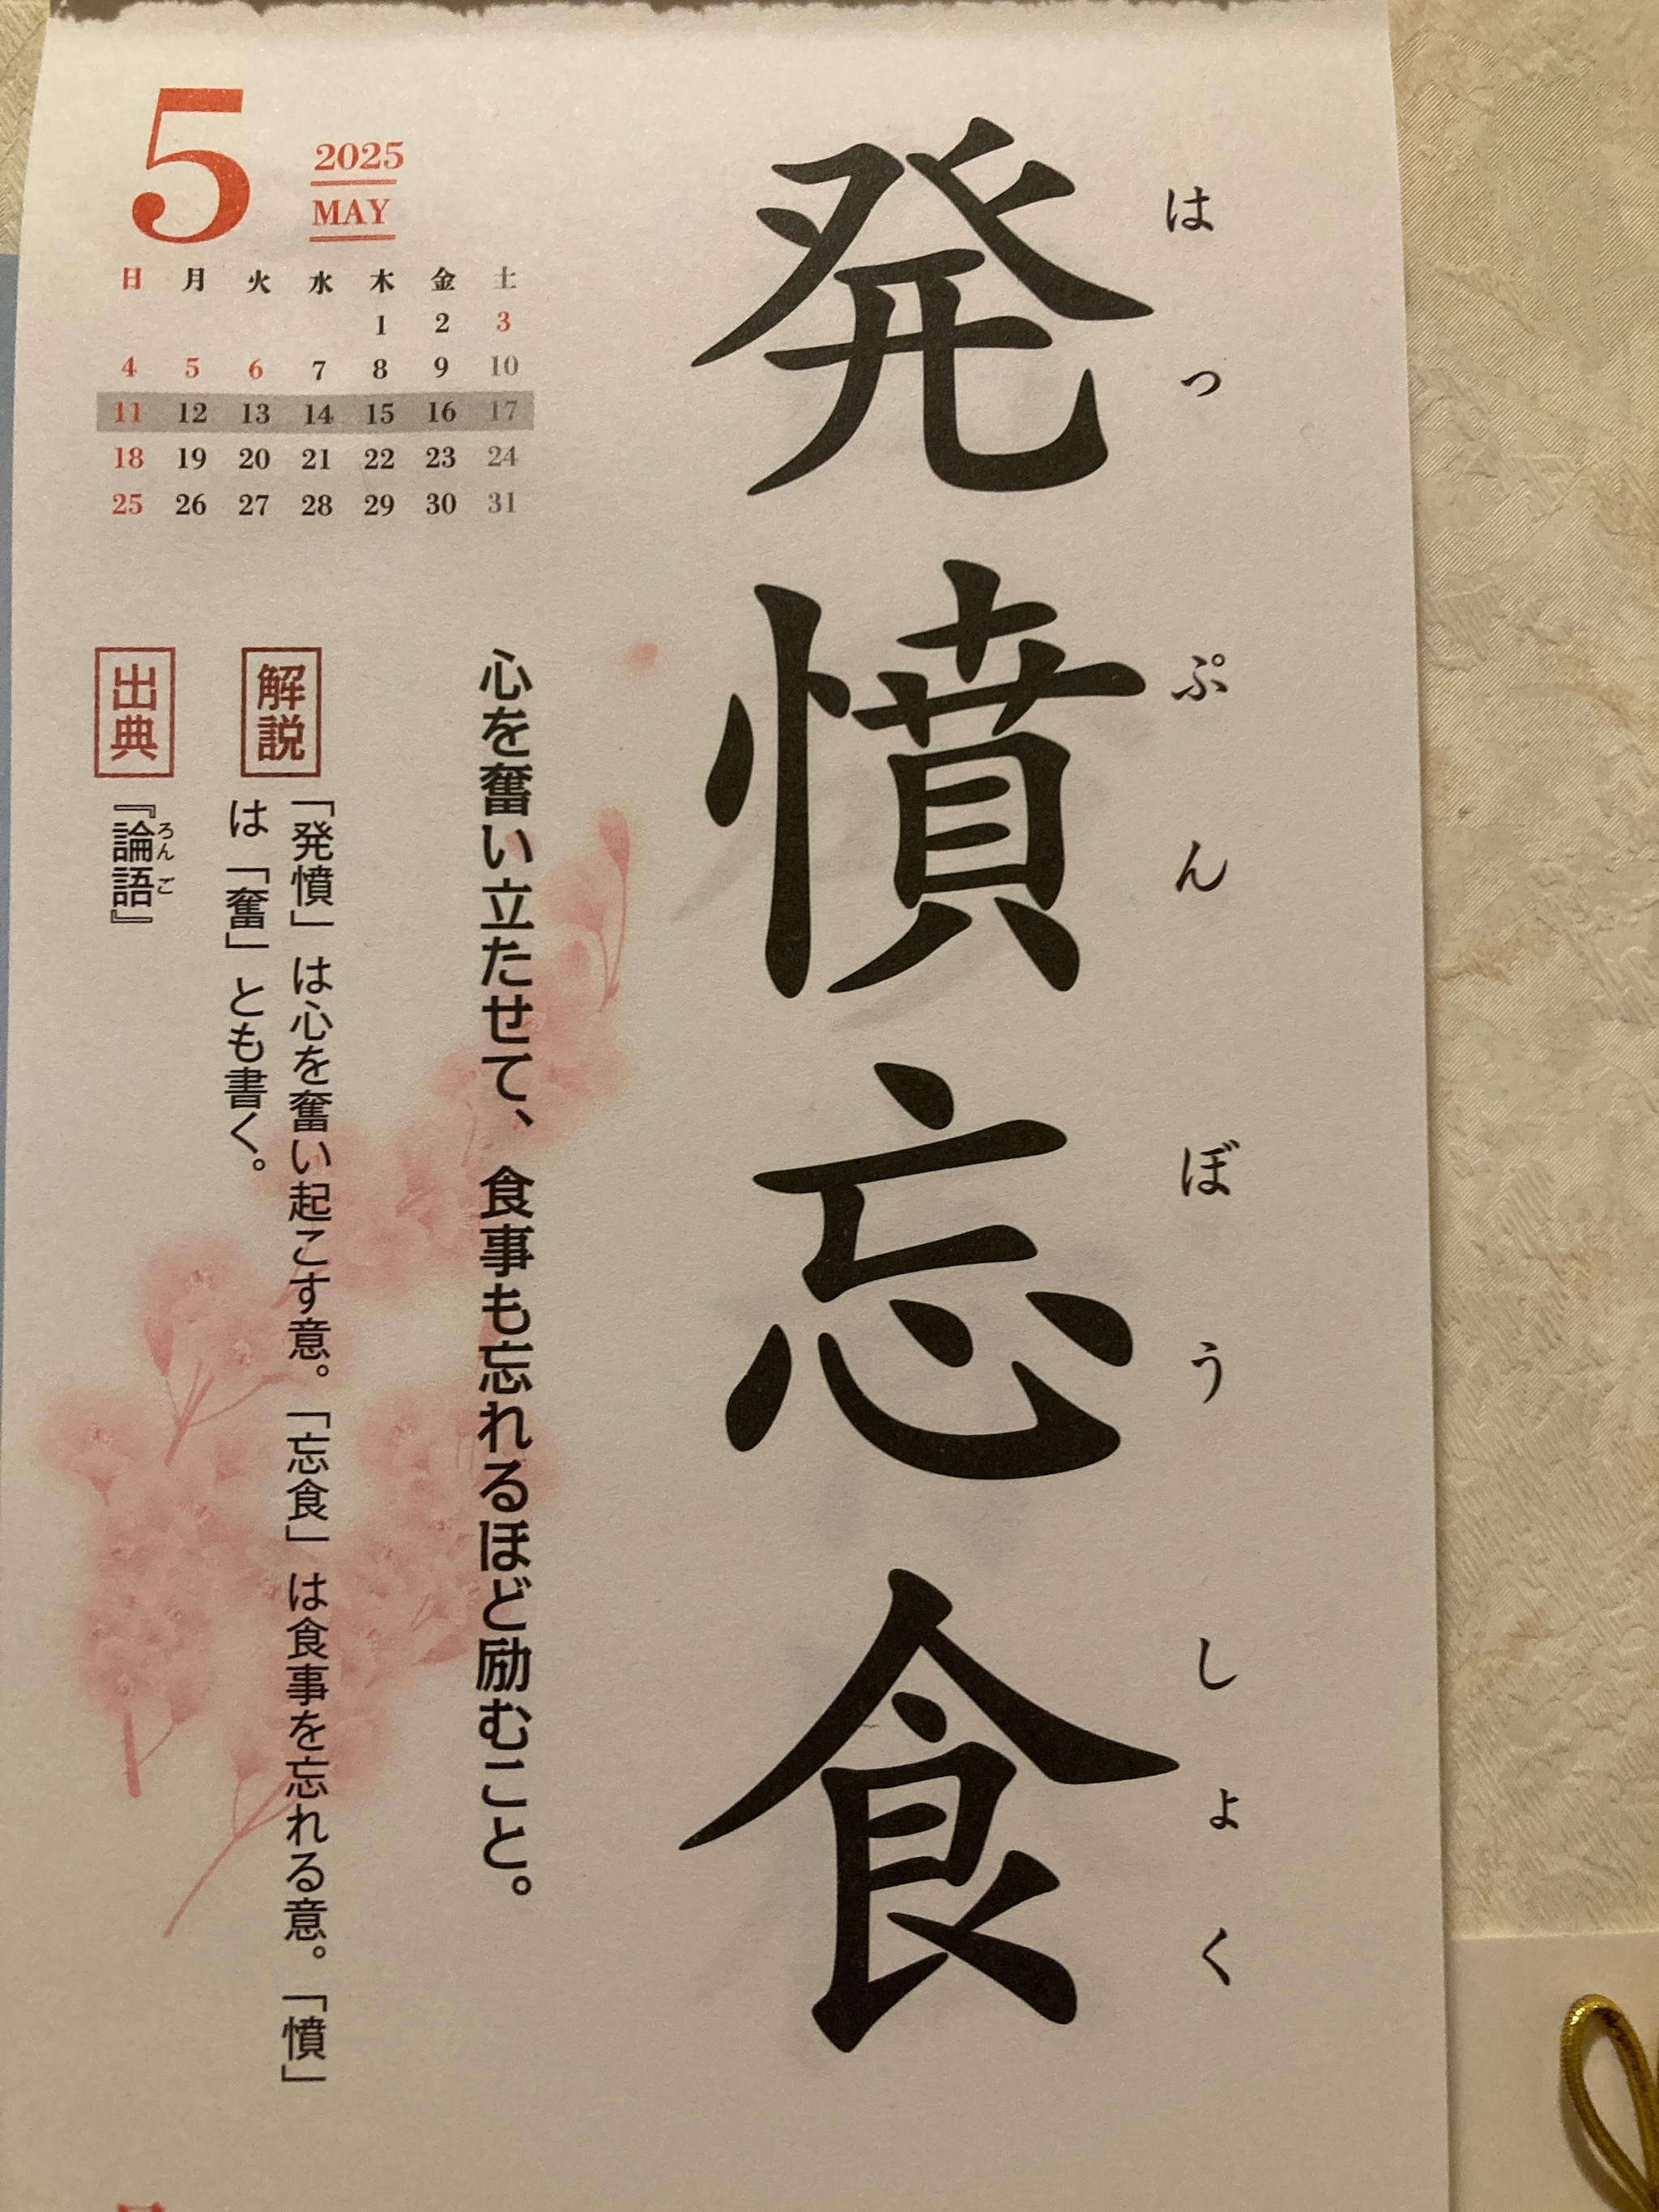 はっぷんぼうしょく
発憤忘食
心を奮い立たせて、食事も忘れるほど励むこと。
解説
「発憤」は心を奮い起こす意。「忘食」は食事を忘れる意。「憤」
は「奮」とも書く。
出典
『論語』
ろんご
5
2025
MAY
日 月 火 水 木 金 土
1 2 3
4 5 6 7 8 9 10
11 12 13 14 15 16 17
18 19 20 21 22 23 24
25 26 27 28 29 30 31